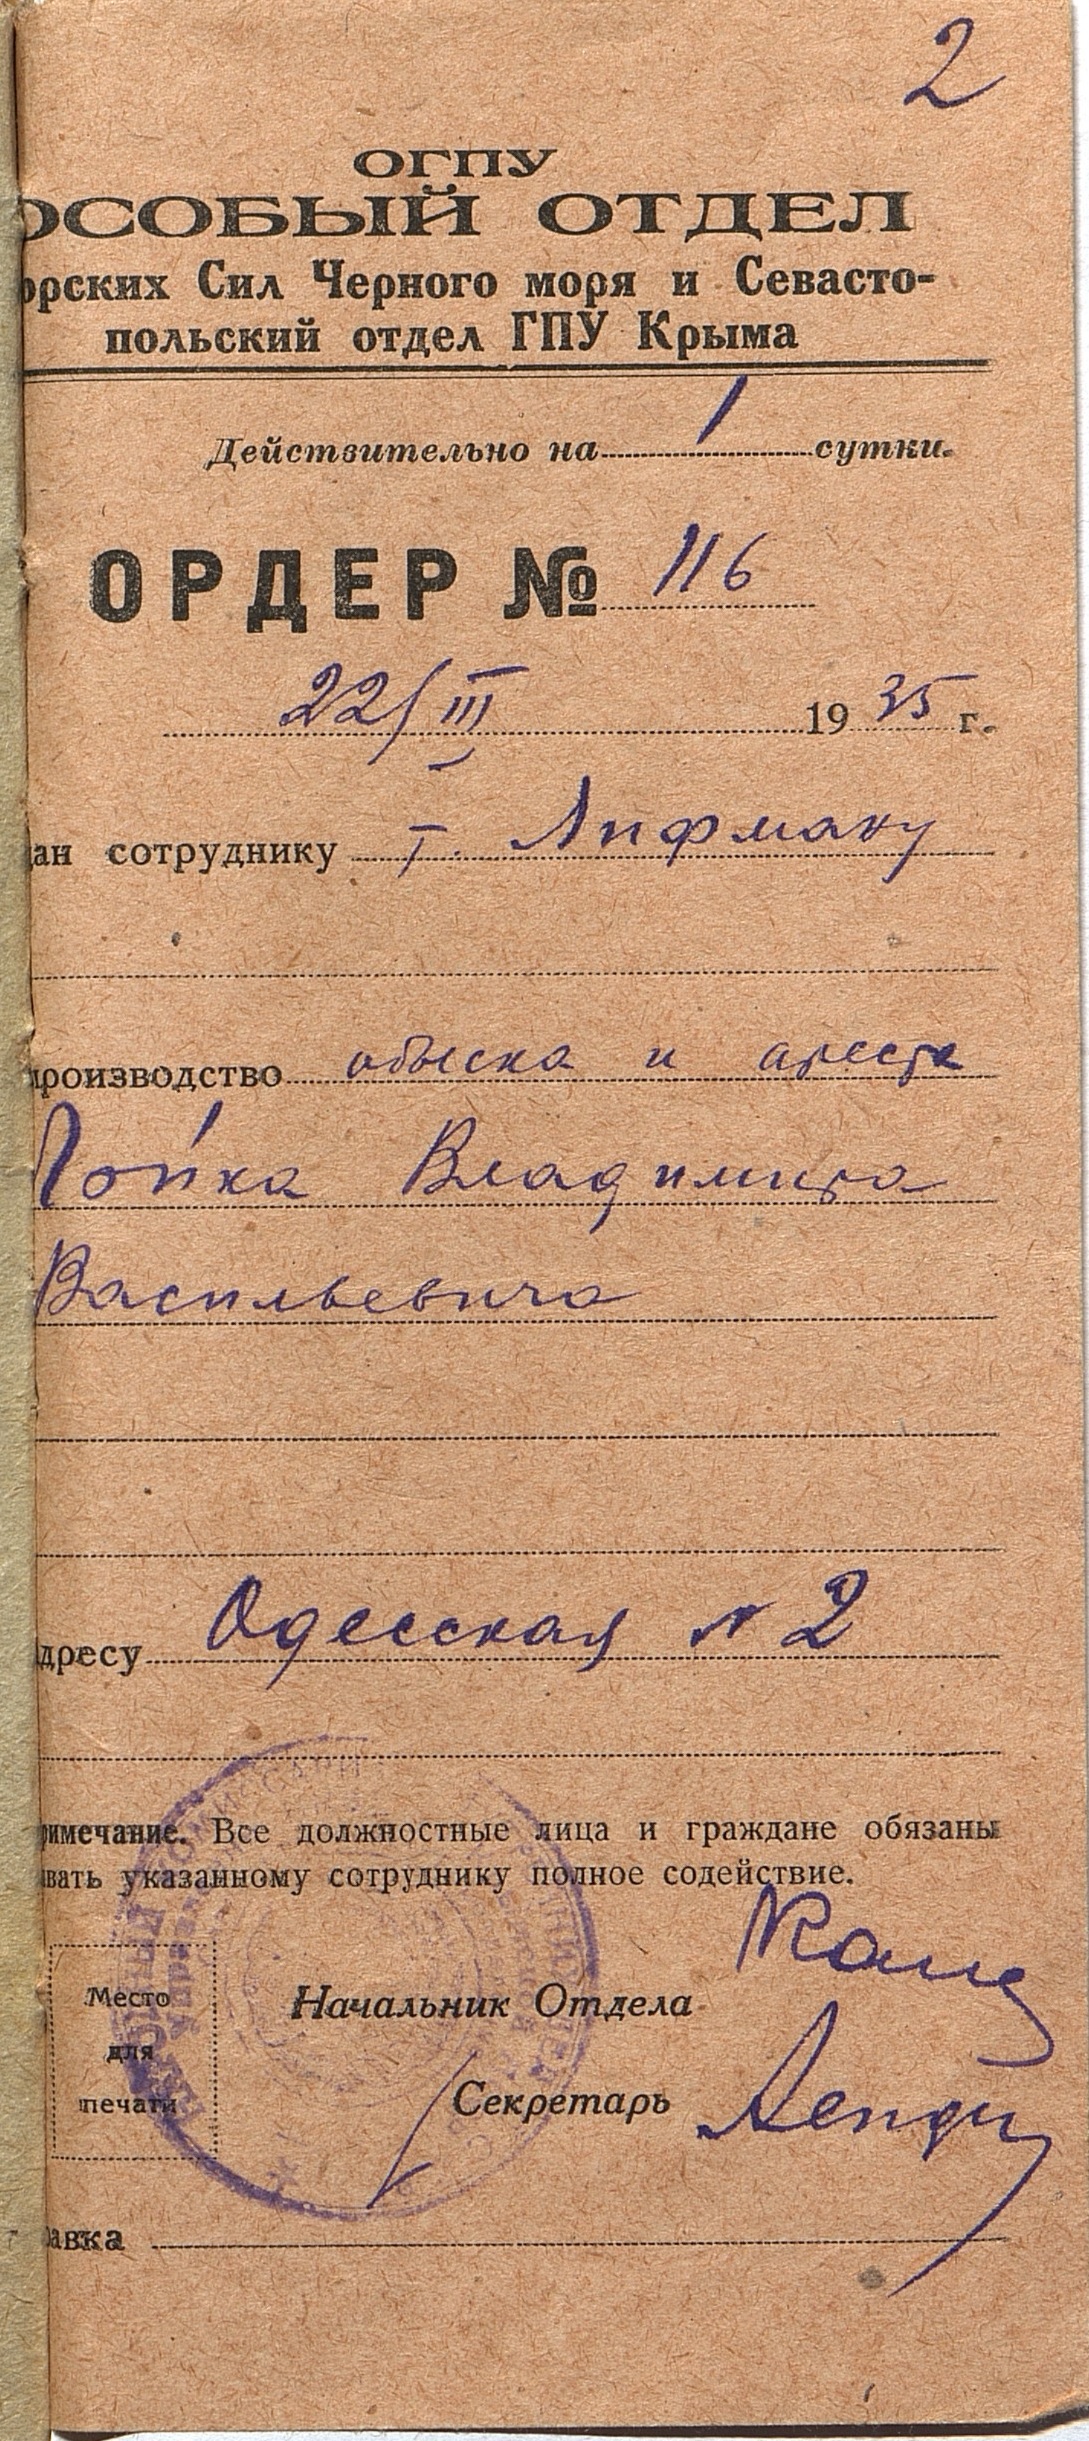 2
ОГПУ
ОСОБЫЙ ОТДЕЛ
орских Сил Черного моря и Севасто-
польский отдел ГПУ Крыма
Действительно на 1 сутки.
ОРДЕР № 116
22/III 1935 г.
дан сотруднику т. Лифману
производство обыска и ареста
Гойка Владимира
Васильевича
дресу Одесская N 2
римечание. Все должностные лица и граждане обязаны
вать указанному сотруднику полное содействие.
Место
для
печати
Начальник Отдела
Секретарь
авка